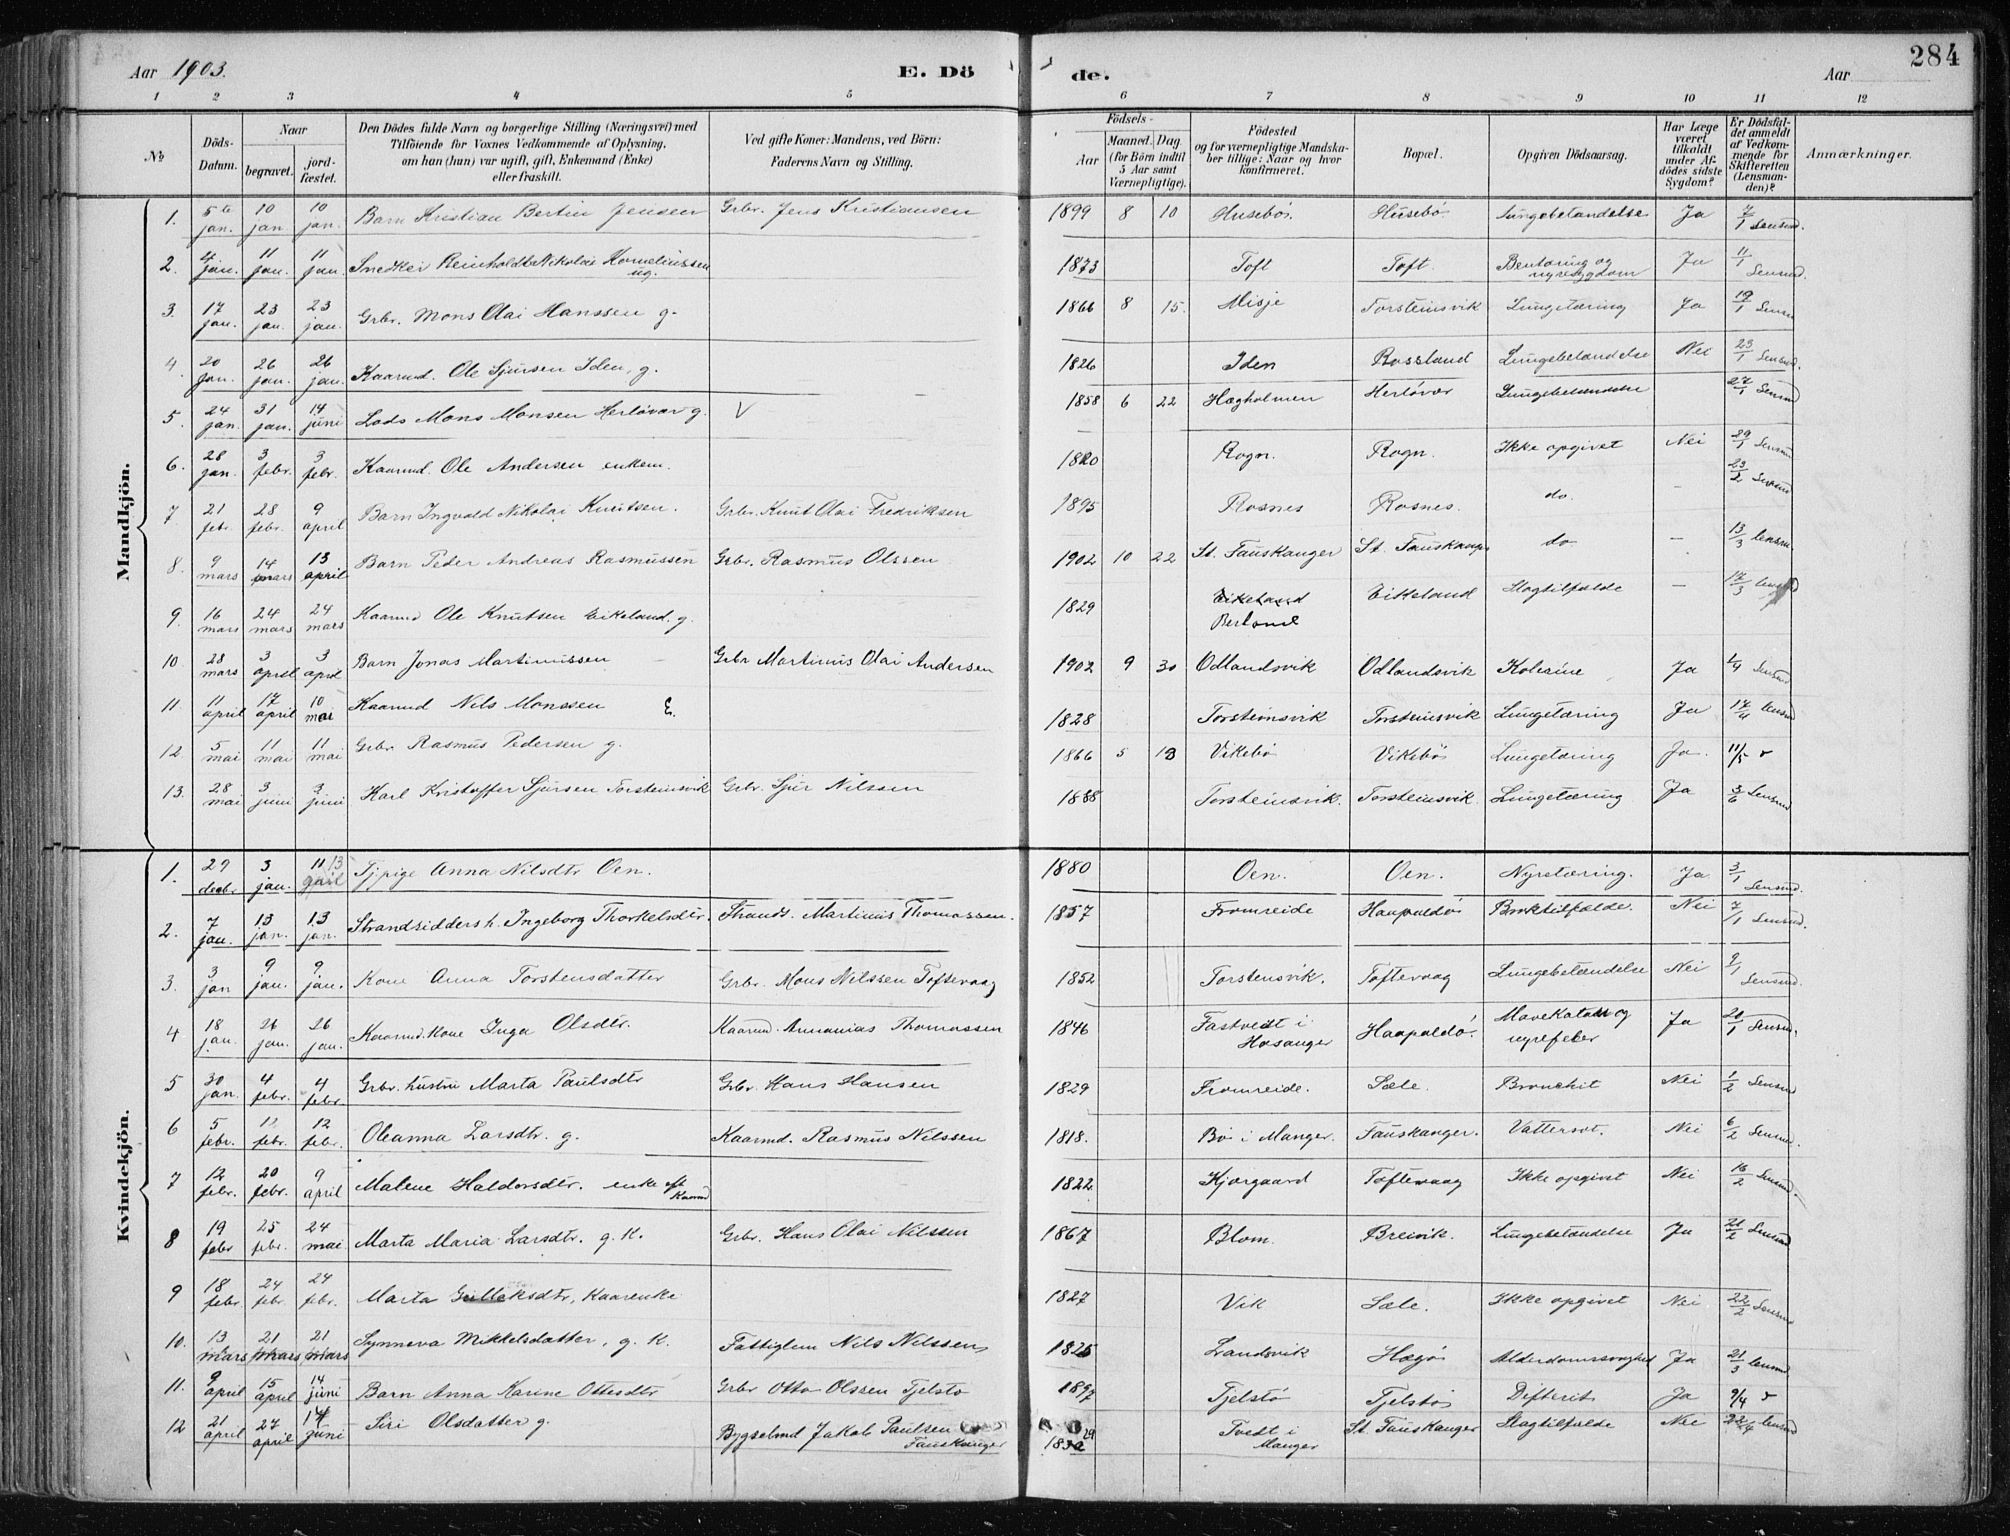 284
Aar 1903. E. Dö de. Aar
1 2 3 4 5 6 7 8 9 10 11 12
No Döds-Datum. Naar begravet. jord-fæstet. Den Dödes fulde Navn og borgerlige Stilling (Næringsvei) med Tilföiende for Voxnes Vedkommende af Oplysning, om han (hun) var ugift, gift, Enkemand (Enke) eller fraskilt. Ved gifte Koner: Mandens, ved Börn: Faderens Navn og Stilling. Födsels- Aar Maaned. Dag (for Börn indtil 5 Aar samt Værnepligtige). Födested og for værnepligtige Mandskaber tillige: Naar og hvor konfirmeret. Bopæl. Opgiven Dödsaarsag. Har Læge været tilkaldt under Afdödes sidste Sygdom? Er Dödsfaldet anmeldt af Vedkommende for Skifteretten (Lensmanden)? Anmærkninger.
Mandkjön.
1. 5te jan. 10 jan 10 jan. Barn Kristian Bertin Jensen Grbr. Jens Kristiansen 1899 8 10 Husebö. Husebö. Lungebetændelse Ja 7/1 Lensmd.
2. 4 jan. 11 jan. 11 jan Snedker Reinholdt Nikolai Korneliussen ug. 1873 Toft Toft. Bentæring og nyresygdom Ja 11/1 Lensmd.
3. 17 jan. 23 jan. 23 jan. Grbr. Mons Olai Hanssen g. 1866 8 15. Misje Torsteinsvik Lungetæring Ja 19/1 Lensm
4. 20 jan. 26 jan. 26 jan. Kaarmd. Ole Sjursen Iden, g. 1826 Iden Rossland Lungebetændelse Nei 23/1 Lensmd
5. 24 jan. 31 jan. 14 juni Lods Mons Monsen Herlövær g. V 1858 6 22 Hægholmen Herlövær Lungebetændelse 27/1 Lensmd
6. 28 jan. 3 febr. 3 febr. Kaarmd. Ole Andersen enkem. 1820 Rogn. Rogn. Ikke opgivet Nei 29/1 Lensmd
7 21 febr. 28 febr. 9 april Barn Ingvald Nikolai Knutsen. Grbr. Knut Olai Fredriksen 1895 Rosnes Rosnes. do. - 23/2 Lensmd
8. 9 mars 14 mars 13 april Barn Peder Andreas Rasmussen Grbr. Rasmus Olssen 1902 10 22 St. Fauskanger St. Fauskang do - 13/3 lensm.
9. 16 mars 24 mars 24 mars Kaarmd Ole Knutsen Eikeland. g. 1829 Eikeland Berland Eikeland Slagtilfælde - 17/3 lensmd
10. 28 mars 3 april 3 april Barn Jonas Martinussen Grbr Martinus Olai Andersen 1902 9 30 Odlandsvik Odlandsvik Kolerine Ja 1/4 Lensmd
11. 11 april 17 april 10 mai Kaarmd Nils Monssen E. 1828 Torsteinsvik Torsteinsvik Lungetæring Ja 17/4 lensmd
12 5 mai 11 mai 11 mai Grbr. Rasmus Pedersen g. 1866 5 13 Vikebö Vikebö Lungetæring Ja. 11/5 v
13. 28 mai 3 juni 3 juni Karl Kristoffer Sjursen Torsteinsvik Grbr. Sjur Nilssen 1888 Torsteinsvik. Torsteinsvik. Lungetæring Ja 3/6 Lensmd
Kvindekjön.
1. 29 decbr. 3 jan. 11 13 april Tjpige Anna Nilsdtr Oen. 1880 Oen. Oen. Nyretæring. Ja 3/1 Lensmd.
2. 7 jan. 13 jan. 13 jan. Strandsidders h. Ingeborg Thorkelsdtr. Strands. Martinus Thomassen. 1857 Fromreide Haapoldö Broktilfælde. Nei 7/1 Lensmd.
3. 3 jan 9 jan. 9 jan. Kone Anna Torstensdatter Grbr. Mons Nilssen Toftevaag 1852 Torstensvik. Toftevaag Lungebetændelse Nei 9/1 Lensmd.
4 18 jan. 26 jan. 26 jan. Kaarmd. Kone Inga Olsdtr. Kaarmd. Annanias Thomassen 1846 Fastvedt i Hosanger Haapoldö. Mavekatarr og nyrefeber Ja 20/1 Lensm.
5 30 jan. 4 febr. 4 febr. Grbr. hustru Marta Paulsdtr Grbr. Hans Hansen 1829 Fromreide. Sæle. Bronchit Nei 1/2 Lensmd
6 5 febr. 12 febr. 12 febr. Oleanna Larsdtr. g. Kaarmd. Rasmus Nilssen 1818. Bö i Manger. Fauskanger. Vattersot. Nei 6/2 Lensmd.
7 12 febr. 20 febr. 9 april Malene Haldorsdtr. enke eft Kaarmd 1822 Kjærgaard Toftevaag Ikke opgivet Nei 16/2 Lensmd.
8 19 febr 25 febr. 24 mai Marta Maria Larsdtr. g. K. Grbr. Hans Olai Nilssen 1867 Blom. Breivik. Lungebetændelse Ja 21/2 Lensmd
9 18 febr. 24 febr. 24 febr. Marta Gullaksdtr, Kaarenke 1827 Vik Sæle. Ikke opgivet Nei 22/2 Lensmd
10. 13 mars 21 mars 21 mars Synneva Mikkelsdatter, g. K. Fattiglem Nils Nilssen, 1825 Landsvik Hægö Alderdomssvaghed Ja 21/3 lensmd
11. 9 april 15 april 14 juni Barn Anna Karine Ottesdtr Grbr Otto Olssen Tjelstö 1897 Tjelstö Tjelstö Difterit Ja 9/4 v
12 21 april 27 april 14 juni Siri Olsdatter g. Bygselmd Jakob Paulsen Fauskanger 29 Tvedt i Manger St. Fauskanger Slagtilfælde Nei 22/4 lensmd